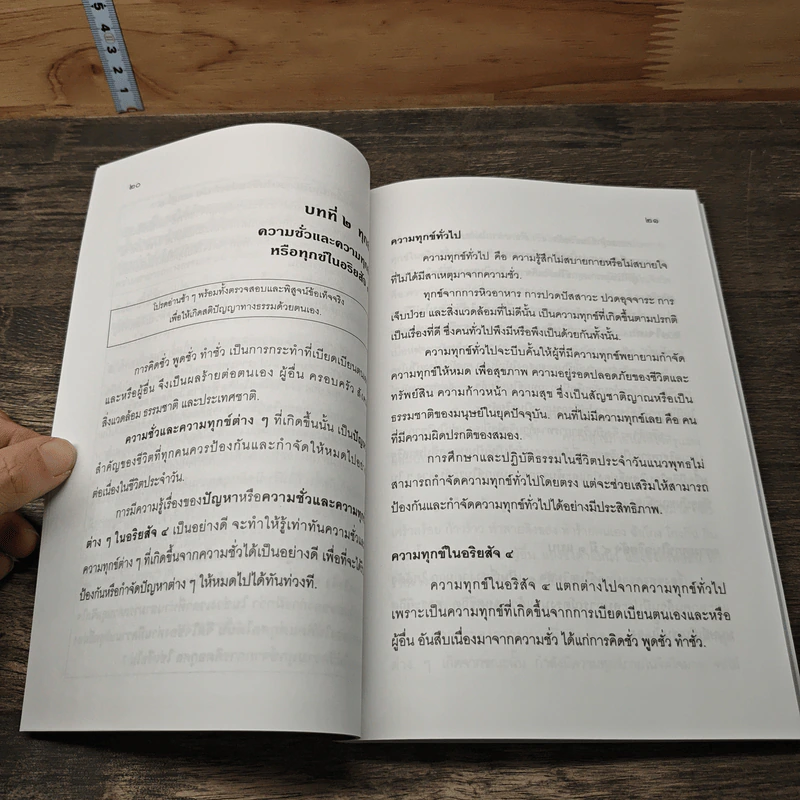 5
4
3
2
1
๒๐
บทที่ ๒
ความชั่วและความทุกข์
หรือทุกข์ในอริยสัจ
โปรดอ่านช้า ๆ พร้อมทั้งตรวจสอบและพิสูจน์ข้อเท็จจริง
เพื่อให้เกิดสติปัญญาทางธรรมด้วยตนเอง.
การคิดชั่ว พูดชั่ว ทำชั่ว เป็นการกระทำที่เบียดเบียนตนเอง
และหรือผู้อื่น จึงเป็นผลร้ายต่อตนเอง ผู้อื่น ครอบครัว
สิ่งแวดล้อม ธรรมชาติ และประเทศชาติ.
ความชั่วและความทุกข์ต่าง ๆ ที่เกิดขึ้นนั้น เป็นปัญหา
สำคัญของชีวิตที่ทุกคนควรป้องกันและกำจัดให้หมดไปอย่าง
ต่อเนื่องในชีวิตประจำวัน.
การมีความรู้เรื่องของปัญหาหรือความชั่วและความทุกข์
ต่าง ๆ ในอริยสัจ ๔ เป็นอย่างดี จะทำให้รู้เท่าทันความชั่วและ
ความทุกข์ต่าง ๆ ที่เกิดขึ้นจากความชั่วได้เป็นอย่างดี เพื่อที่จะได้
ป้องกันหรือกำจัดปัญหาต่าง ๆ ให้หมดไปได้ทันท่วงที.
๒๑
ความทุกข์ทั่วไป
ความทุกข์ทั่วไป คือ ความรู้สึกไม่สบายกายหรือไม่สบายใจ
ที่ไม่ได้มีสาเหตุมาจากความชั่ว.
ทุกข์จากการหิวอาหาร การปวดปัสสาวะ ปวดอุจจาระ การ
เจ็บป่วย และสิ่งแวดล้อมที่ไม่ดีนั้น เป็นความทุกข์ที่เกิดขึ้นตามปรกติ
เป็นเรื่องที่ดี ซึ่งคนทั่วไปพึงมีหรือพึงเป็นด้วยกันทั้งนั้น.
ความทุกข์ทั่วไปจะบีบคั้นให้ผู้ที่มีความทุกข์พยายามกำจัด
ความทุกข์ให้หมด เพื่อสุขภาพ ความอยู่รอดปลอดภัยของชีวิตและ
ทรัพย์สิน ความก้าวหน้า ความสุข ซึ่งเป็นสัญชาติญาณหรือเป็น
ธรรมชาติของมนุษย์ในยุคปัจจุบัน. คนที่ไม่มีความทุกข์เลย คือ คน
ที่มีความผิดปรกติของสมอง.
การศึกษาและปฏิบัติธรรมในชีวิตประจำวันแนวพุทธไม่
สามารถกำจัดความทุกข์ทั่วไปโดยตรง แต่จะช่วยเสริมให้สามารถ
ป้องกันและกำจัดความทุกข์ทั่วไปได้อย่างมีประสิทธิภาพ.
ความทุกข์ในอริยสัจ ๔
ความทุกข์ในอริสัจ ๔ แตกต่างไปจากความทุกข์ทั่วไป
เพราะเป็นความทุกข์ที่เกิดขึ้นจากการเบียดเบียนตนเองและหรือ
ผู้อื่น อันสืบเนื่องมาจากความชั่ว ได้แก่การคิดชั่ว พูดชั่ว ทำชั่ว.